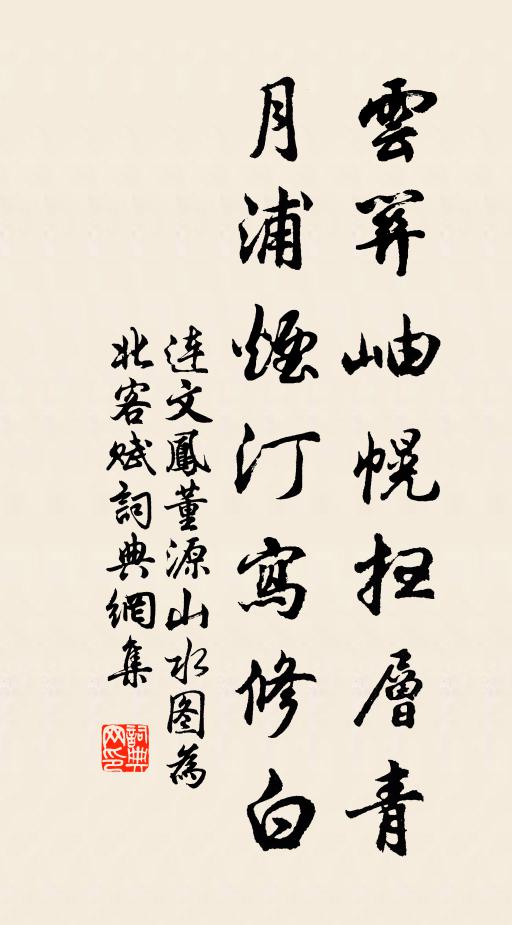 雲開岫幌扫層青
月浦煙汀寫修白
连文鳳董源山水图為
北客赋詞典網集
詞典网印